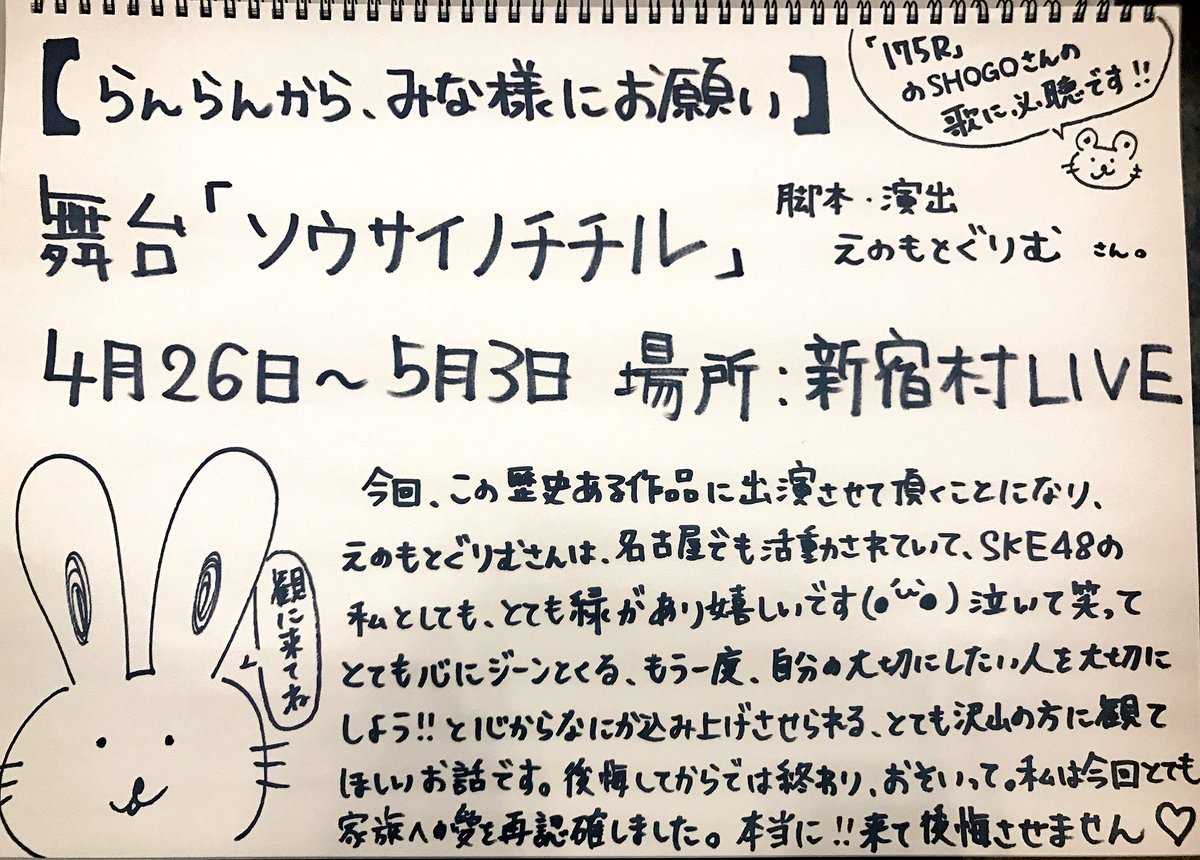 【らんらんから、みな様にお願い】
「175R」
のSHOGOさんの
歌に、必聴です!!
舞台「ソウサイノチチル」
脚本・演出
えのもとぐりむ さん。
4月26日〜5月3日 場所:新宿村LIVE
今回、この歴史ある作品に出演させて頂くことになり、
えのもとぐりむさんは、名古屋でも活動されていて、SKE48の
私としても、とても縁があり嬉しいです(●'◡'●)泣いて笑って
とても心にジーンとくる、もう一度、自分の大切にしたい人を大切に
しよう!!と心からなにか込み上げさせられる、とても沢山の方に観て
ほしいお話です。後悔してからでは終わり、おそいって。私は今回とても
家族への愛を再認確しました。本当に!!来て後悔させません♡
観に来てね